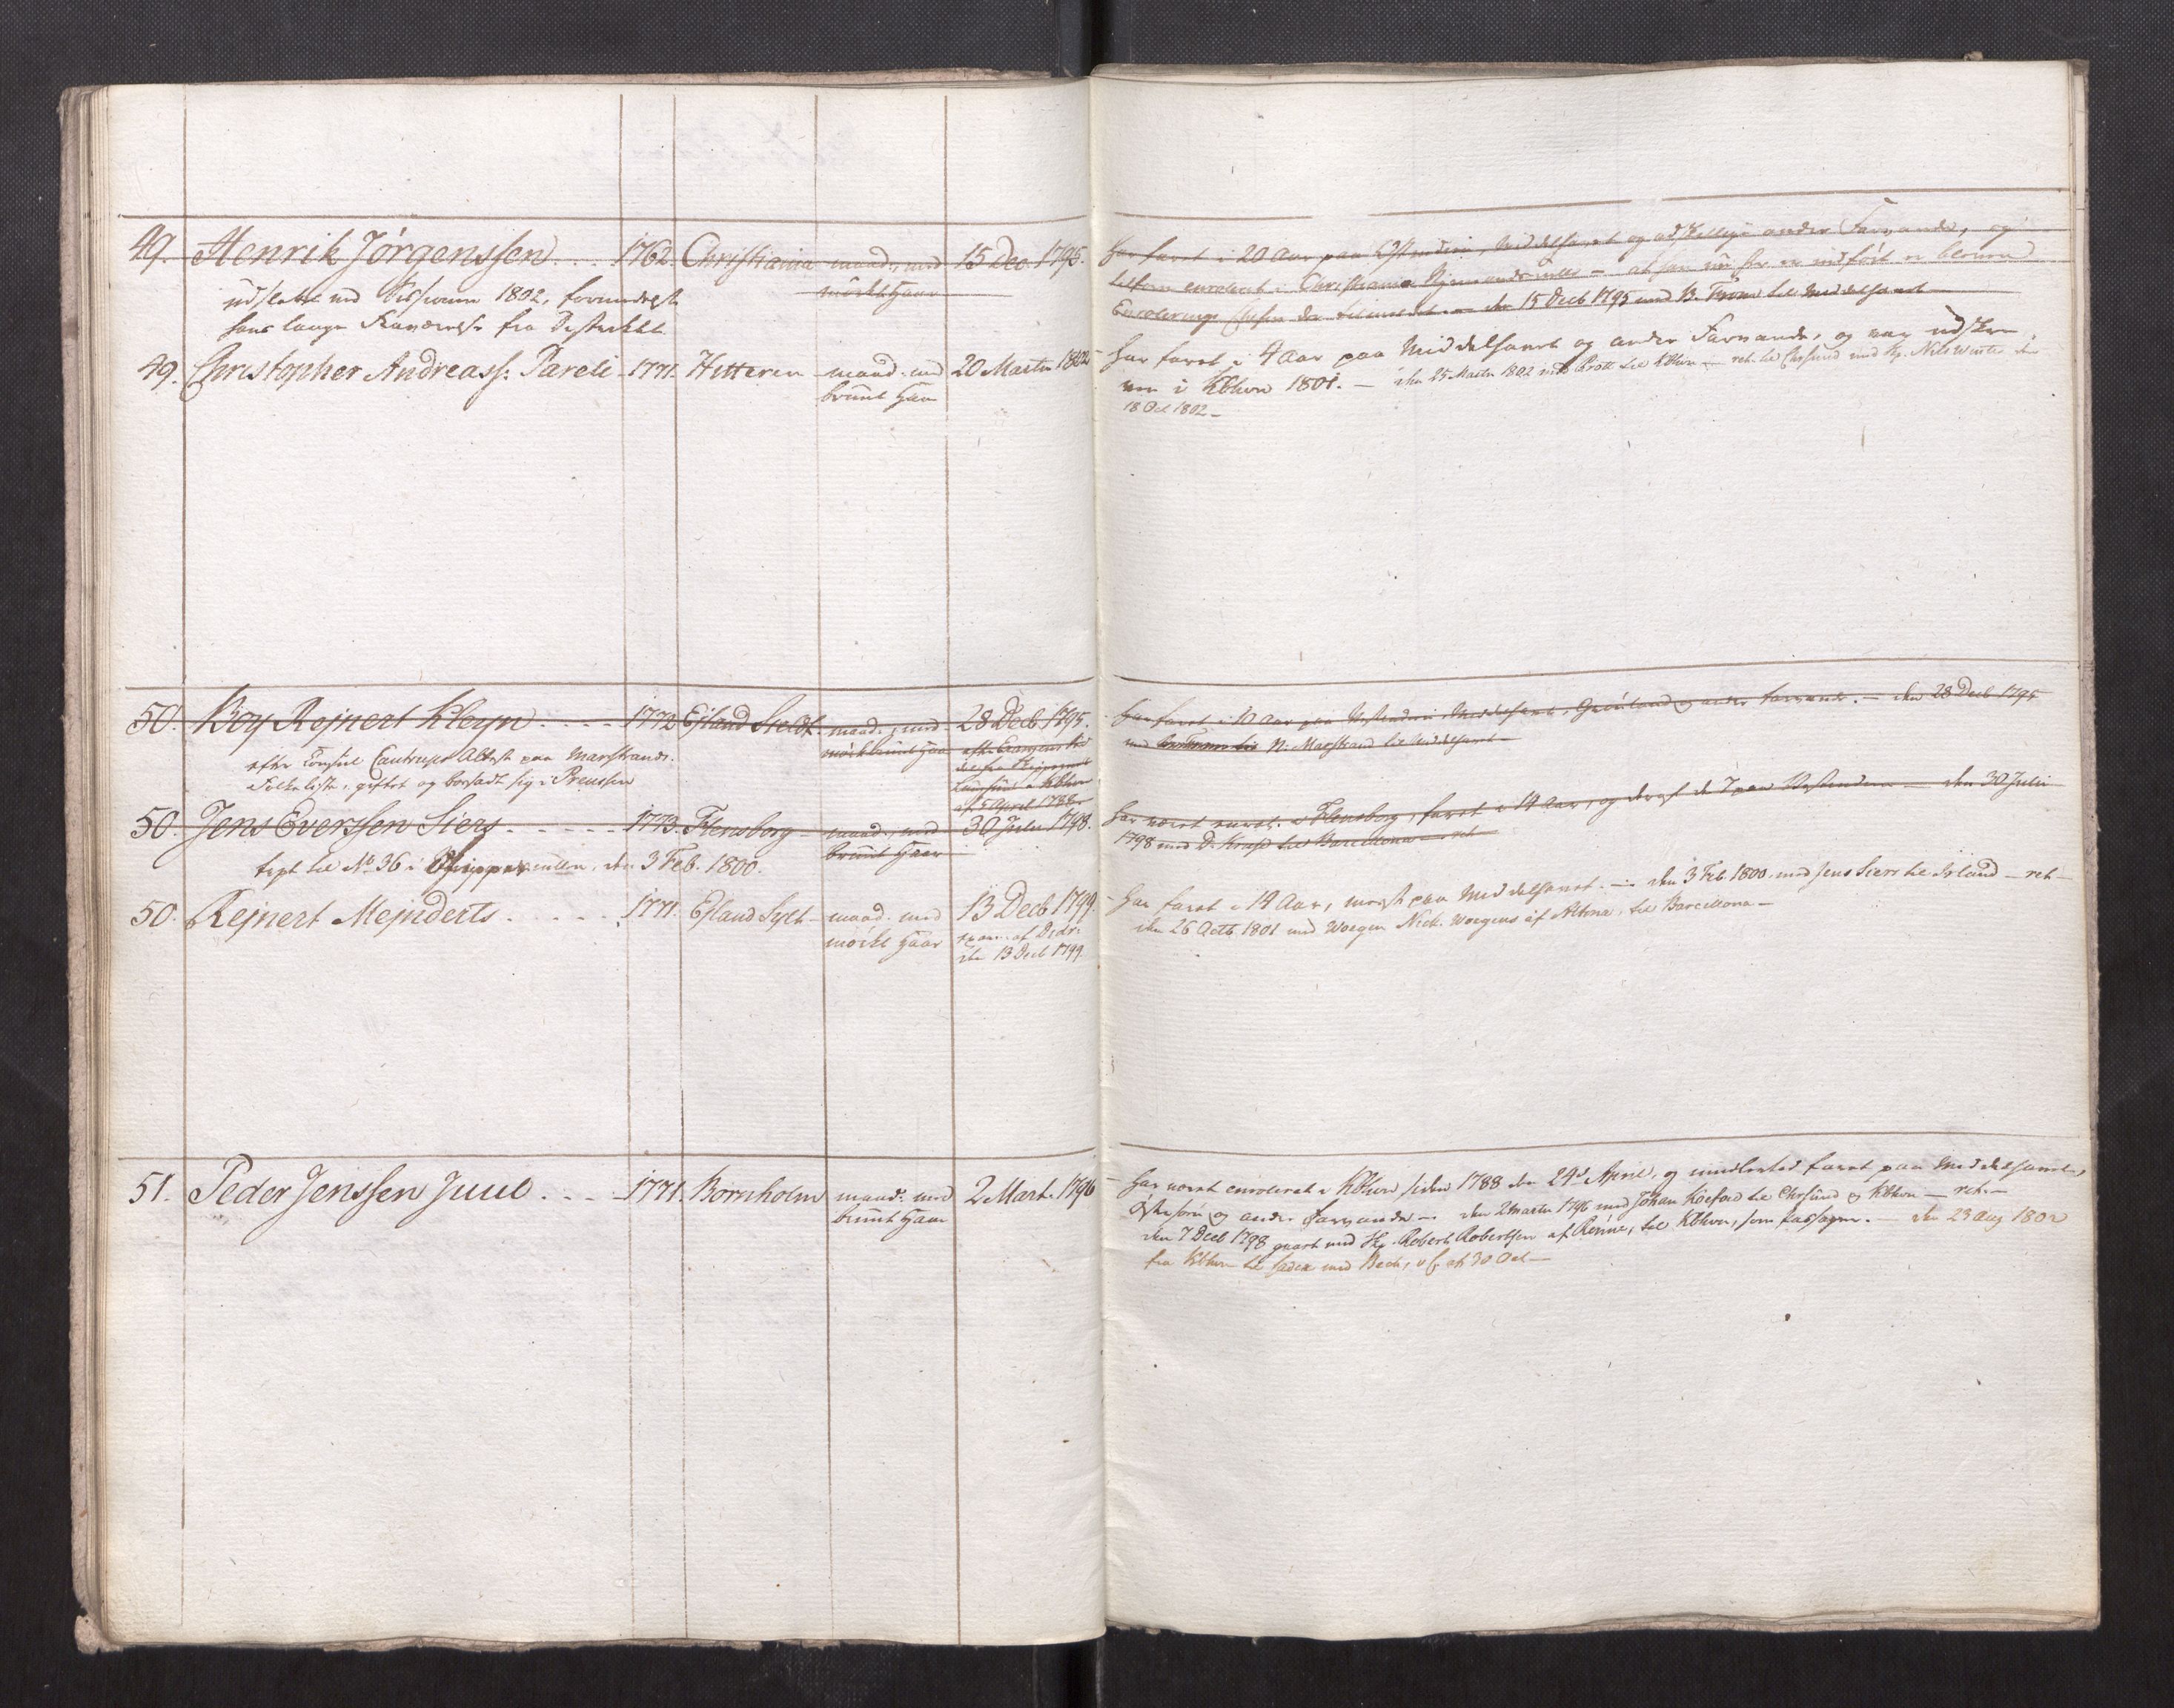 49. Henrik Jörgenssen . . . 1762. Christiania maad: med 15 Dec. 1795.
mörkt Haar
udslettet ved Sessionen 1802, formedelst
hans lange Fraværelse fra Distriktet
49. Christopher Andreass: Pareli - 1771. Hitteren - maad: med 20 Martii 1802
brunt Haar
50. Boy Rejnert Kleyn . . . . 1772 Ejland Syldt maad: med 28 Decb. 1795.
mörkbrunt Haar
efter Consul Attest paa Marstrands
Folkeliste, giftet og bosadt sig i Preussen
af 5 April 1788
50. Jens Everssen Siers . . . . . 1773. Flensborg - maad: med 30 Julii 1798.
brunt Haar
sögt til No 36 i Skipperrullen, den 3 Feb. 1800.
50. Rejnert Mejnderts . . . . . 1771. Ejland Sylt - maad: med 13 Decb 1799.
mörkt Haar
exam: af
den 13 Decb 1799.
51. Peder Jenssen Juul . . . . 1771. Bornholm maad: med 2 Mart. 1796
brunt Haar
har faret i 20 Aar paa Ostindien, Middelhavet og adskillige andre Farvande, og
tilforn enrolleret i Christiania - at han nu her er indfört er bleven
Enrollerings Chefen der tilmeldt. - den 15 Decb 1795 med B. til Middelhavet
har faret i 4 Aar paa Middelhavet og andre Farvande, og var udskre
ven i Kbhvn 1801. - den 25 Martii 1802 med Brött til Kbhvn - ret. til Chrsund med Sk. Nils den
18 Oct 1802 -
har faret i 10 Aar paa Vestindien, Middelhavet, Grönland og andre Farvande. - den 28 Decb 1795
med N: Marstrand til Middelhavet
har været enrol. i Flensborg, faret i 14 Aar, og deraf de 7 paa Vestindien - den 30 Julii
1798 med D. til Barcellona - ret
har faret i 14 Aar, mest paa Middelhavet. - den 3 Feb. 1800 med Jens Siers til Irland - ret -
den 26 Octb. 1801 med Woegen Nick. Woegens af Altona, til Barcellona -
har været enrolleret i Kbhvn siden 1788 den 24de April, og imidlertid faret paa Middelhavet,
Östersöen og andre Farvande - den 2 Martii 1796 med Johan Köefoed til Chrsund og Kbhvn - ret. -
den 7 Decb 1798 gaaet med Sk. Robert Robertsen af Rönne, til Kbhvn, som Passager. - den 23 Aug 1802
fra Kbhvn til med Beck, af 30 Oct -